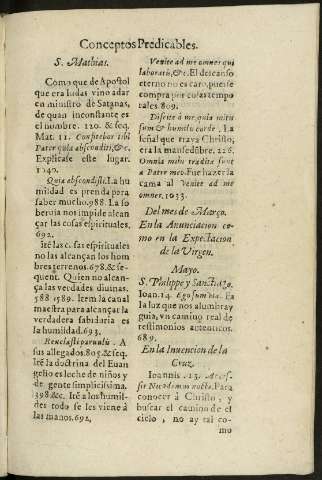 Conceptos Predicables.
S. Mathias.
Como que de Apostol
que era Iudas vino a dar
en ministro de Satanas,
de quan inconstante es
el hombre. 120. & seq.
Mat. 11. Confitebor tibi
Pater quia abscondisti, &c.
Explicase este lugar.
1140.
Quia abscondisti. La hu
mildad es prenda para
saber mucho. 988. La so
beruia nos impide alcan
çar las cosas espirituales.
692.
Itē las c. sas espirituales
no las alcançan los hom
bres terrenos. 678. & se-
quent. Quien no alcan-
ça las verdades diuinas.
588 1589. Item la canal
maestra para alcançar la
verdadera sabiduria es
la humildad. 693.
Reuelasti paruulis. A
sus allegados. 805. & seq.
Itē la doctrina del Euan
gelio es leche de niños y
de gente simplicissima.
398. & c. Itē a los humil-
des todo se les viene à
las manos. 692.
Venite ad me omnes qui
laboratis, &c. El descanso
eterno no es caro, puesse
compra por cosas tempo
rales. 809.
Discite à me quia mitis
sum & humilis corde. La
señal que traya Christo,
era la mansedūbre. 226.
Omnia mihi tradita sunt
a Patre meo. Fue hazer la
cama al Venite ad me
omnes. 1033.
Del mes de Março.
En la Anunciacion co-
mo en la Expectacion
de la Virgen.
Mayo.
S. Phalippe y Sanctiago.
Ioan. 14. Ego sum via. Es
la luz que nos alumbra y
guia, vn camino real de
testimonios autenticos.
689.
En la Inuencion de la
Cruz.
Ioannis. 13. Acces-
sit Nicodemus nocte. Para
conocer à Christo, y
buscar el camino del
cielo, no ay tal co
mo